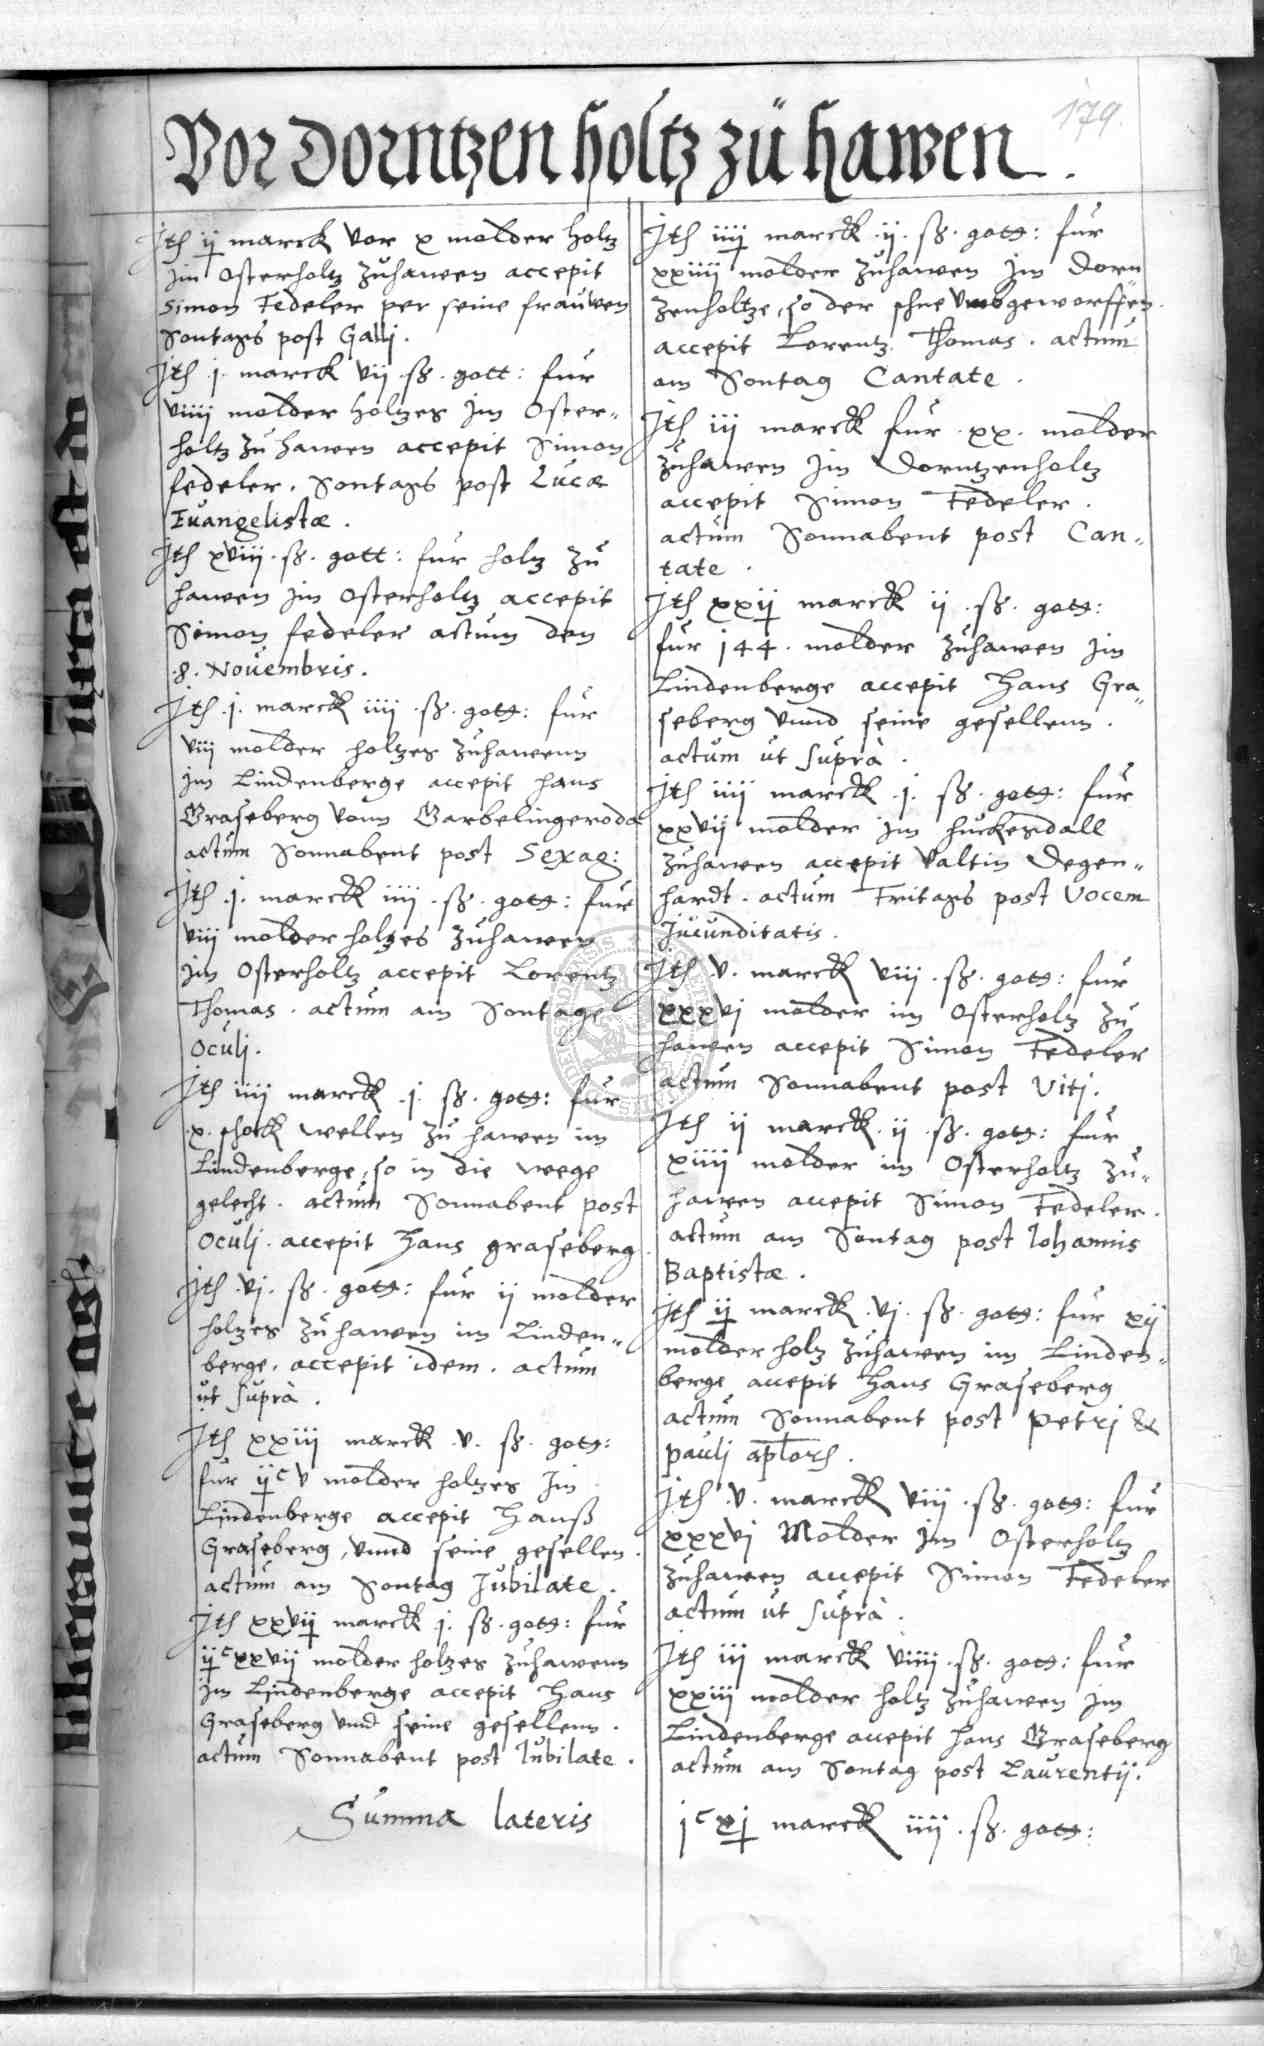 179.
Vor Dorntzen holtz zü hawen.
Jtē ij marck vor x molder holtz
jm Osterholtz zuhawen accepit
Simon Fedeler per seine frauwen
Sontags post Galli.
Jtē .j. marck vij .ß. gott: fur
viiij molder holtzes jm Oster„
holtz zu hawen accepit Simon
fedeler. Sontags post Lucæ
Euangelistæ.
Jtē xviij .ß. gott: fur holtz zu
hawen jm Osterholtz accepit
Simon fedeler actum den
.8. Nouembris.
Jtē .j. marck iiij .ß. gott: fur
viij molder holtzes zuhawenn
jm Lindenberge accepit hans
Graseberg vonn Garbelingeroda
actum Sonnabent post Sexag:
Jtē .j. marck iiij .ß. gott: fur
viij molder holtzes zuhawen
jm Osterholtz accepit Lorentz
Thomas. actum am Sontage
Oculj.
Jtē iiij marck .j. ß. gott: fur
.x. schock wellen zu hawen im
Lindenberge, so in die wege
gelecht. actum Sonnabent post
Oculj. accepit Hans graseberg.
Jtē .vj. ß. gott: fur ij molder
holtzes zuhawen im Linden„
berge. accepit idem. actum
ut suprà.
Jtē xxiij marck .v. ß. gott:
fur ijᶜ v molder holtzes Jm
Lindenberge accepit Hanß
Graseberg, vnnd seine gesellen.
actum am Sontag Jubilate.
Jtē xxvij marck j. ß. gott: fur
ijᶜxxvij molder holtzes zuhawenn
jm Lindenberge accepit Hans
Graseberg vnd seine gesellenn.
actum Sonnabent post Iubilate.
Summa lateris
Jtē iiij marck .ij. ß. gott: fur
xxiiij molder zuhawen jm Dorn
zenholtze, so der schne vmbgeworffen.
accepit Lorentz Thomas. actum
am Sontag Cantate.
Jtē iij marck fur .xx. molder
zuhawen jm Dorntzenholtz
accepit Simon Fedeler.
actum Sonnabent post Can„
tate.
Jtē xxij marck ij .ß. gott:
fur 144. molder zuhawen jm
Lindenberge accepit Hans Gra„
seberg vnnd seine gesellenn.
actum ut suprà.
Jtē iiij marck .j. ß. gott: fur
xxvij molder im huckesdall
zuhawen accepit Valtin Degen„
hardt. actum Fritags post Vocem
Jucunditatis.
Jtē .v. marck viij .ß. gott: fur
xxxvj molder im Osterholtz zu
hawen accepit Simon Fedeler
actum Sonnabent post Viti.
Jtē ij marck .ij .ß. gott: fur
xiiij molder im Osterholtz zu„
hawen accepit Simon Fedeler.
actum am Sontag post Iohannis
Baptistæ.
Jtē ij marck .vj. ß. gott: fur xij
molder holtz zuhawen im Linden„
berge accepit Hans Graseberg
actum Sonnabent post Petrj &
Paulj aplorū.
Jtē .v. marck viij .ß. gott: fur
xxxvj Molder jm Osterholtz
zuhawen accepit Simon Fedeler
actum ut suprà.
Jtē iij marck viiij .ß. gott: fur
xxiij molder holtz zuhawen jm
Lindenberge accepit Hans Graseberg
actum am Sontag post Laurentij.
jᶜxj marck iiij .ß. gott: